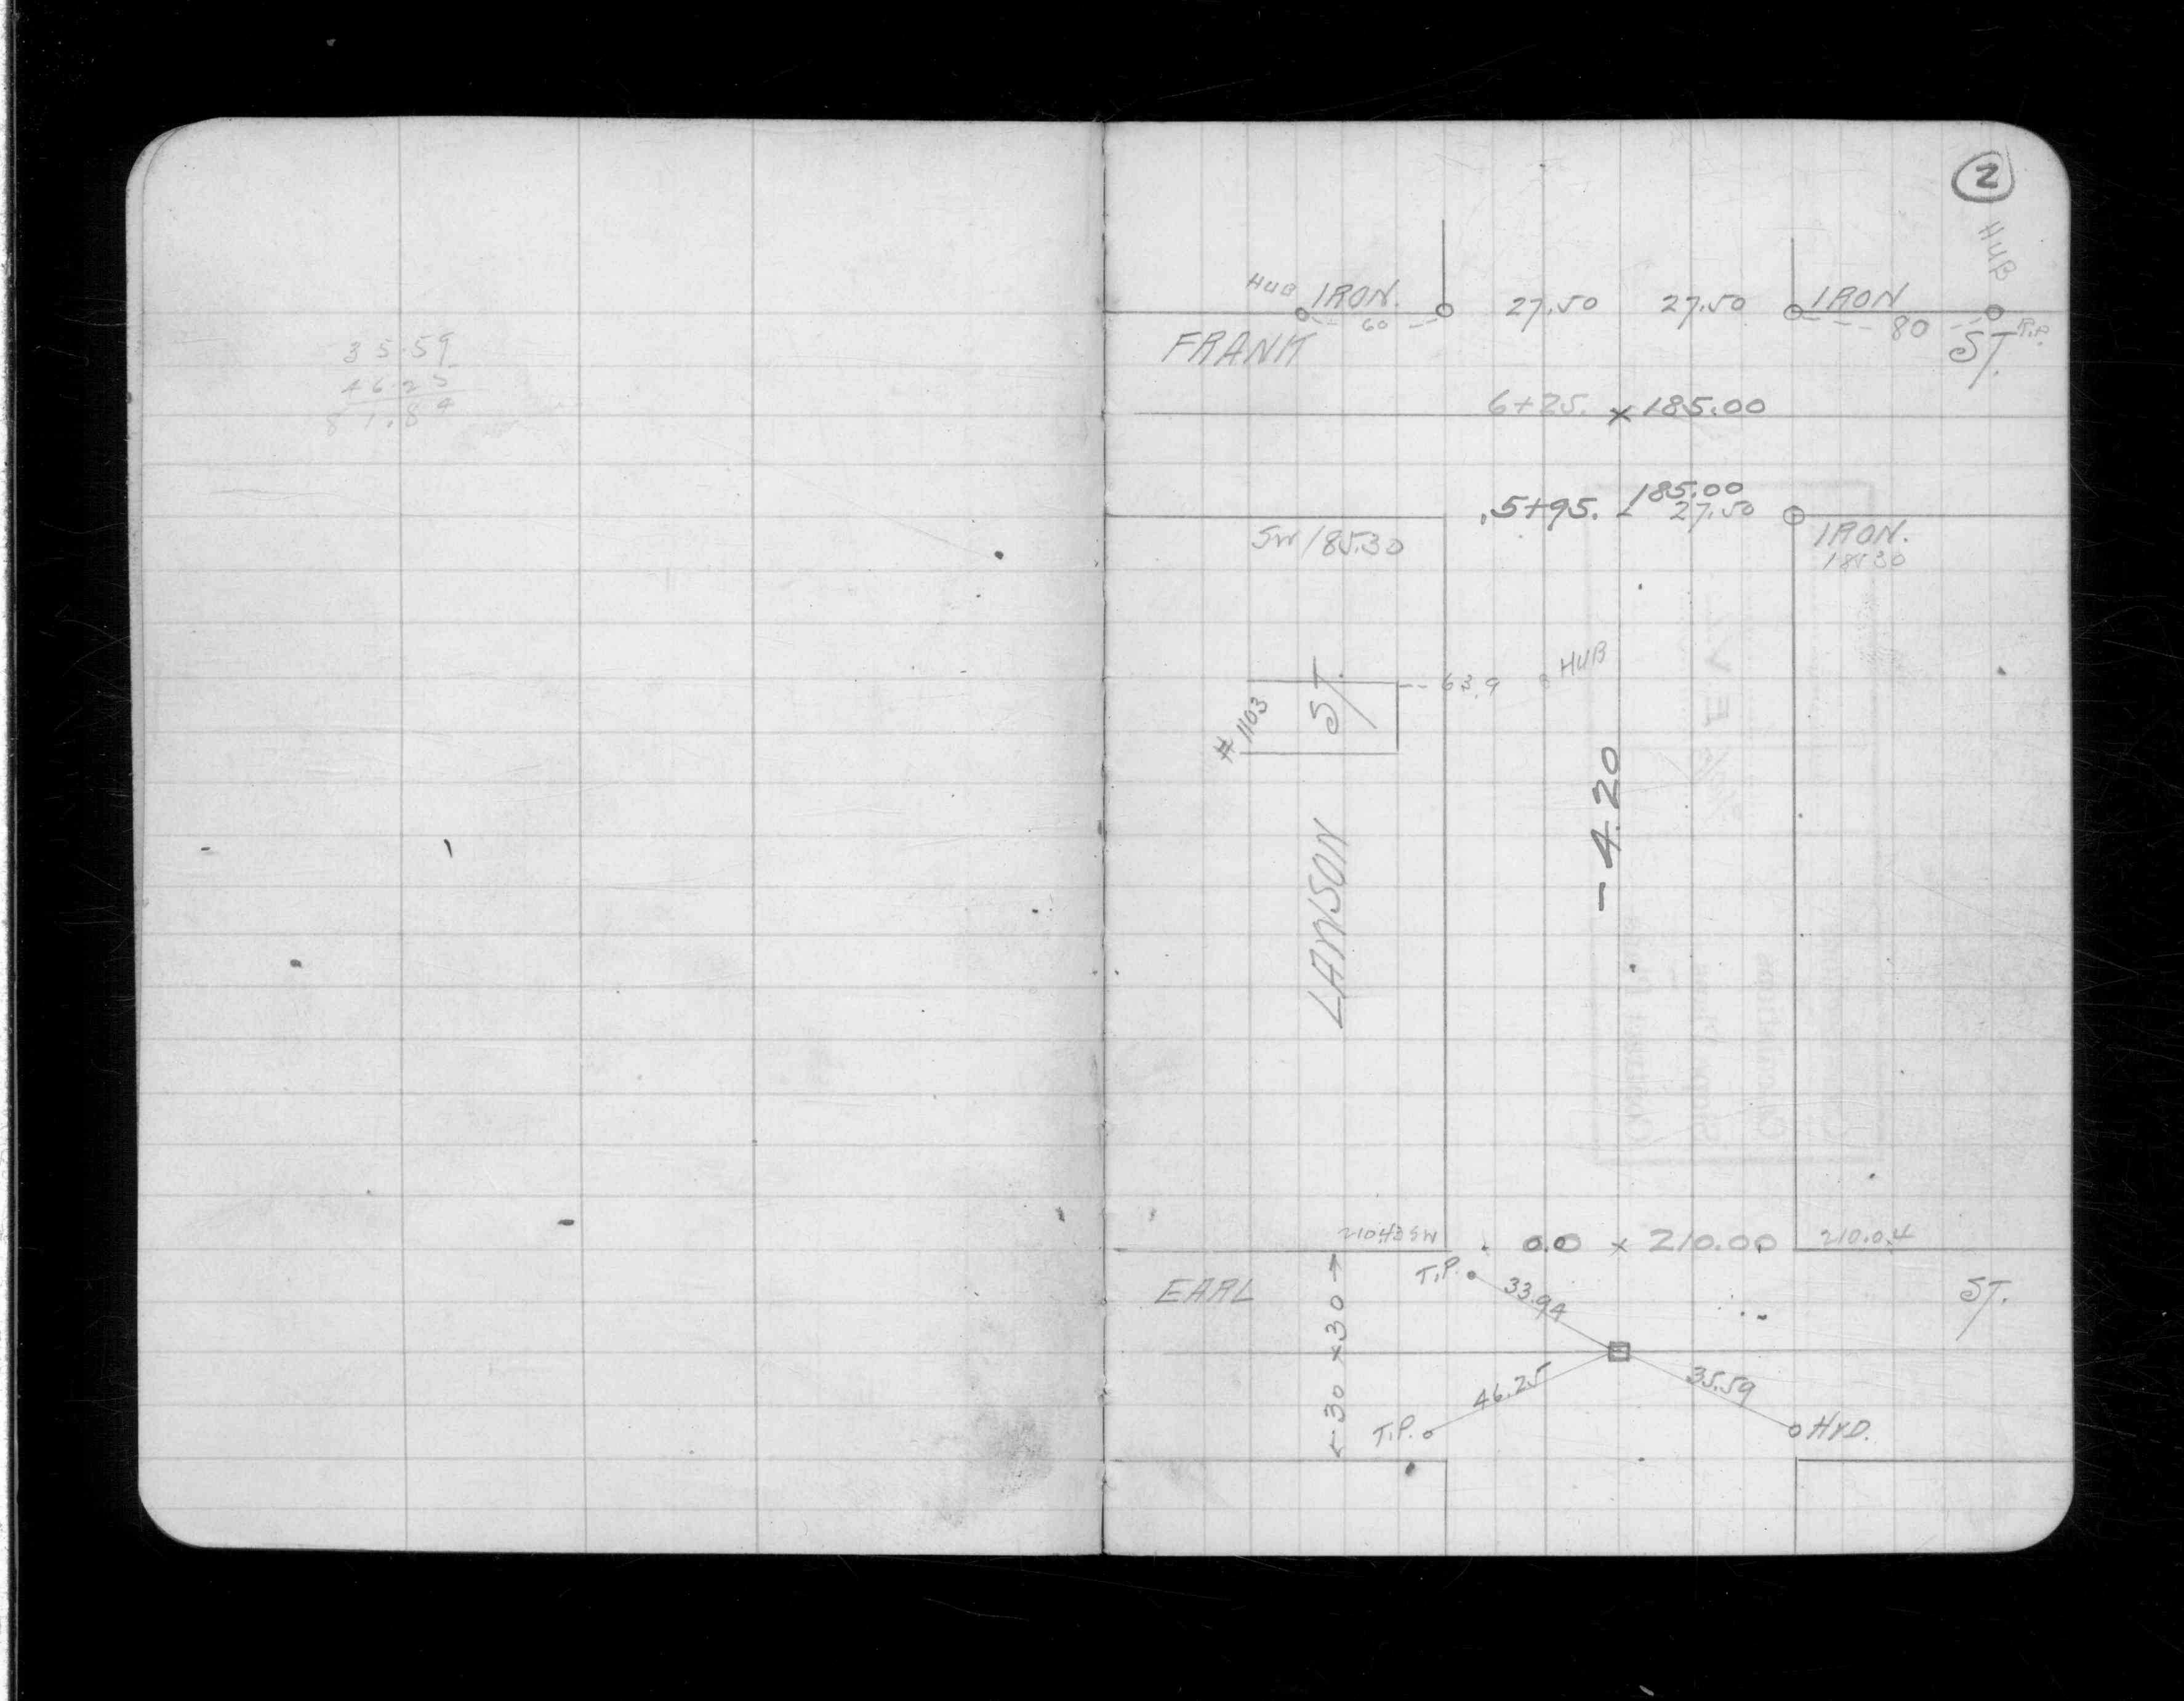 35.59
46.25
81.84
2
HUB
HUB IRON. 27.50 27.50 IRON
60 80
FRANK ST.
6+25. x 185.00
185.00
.5+95. 27.50
SW 185.30 IRON.
185.30
HUB
63.9
#1103
LAWSON ST.
-4.20
210.43 SW 0.0 x 210.00 210.04
T.P.
33.94
EARL ST.
30 x 30
46.25 35.59
T.P. HYD.